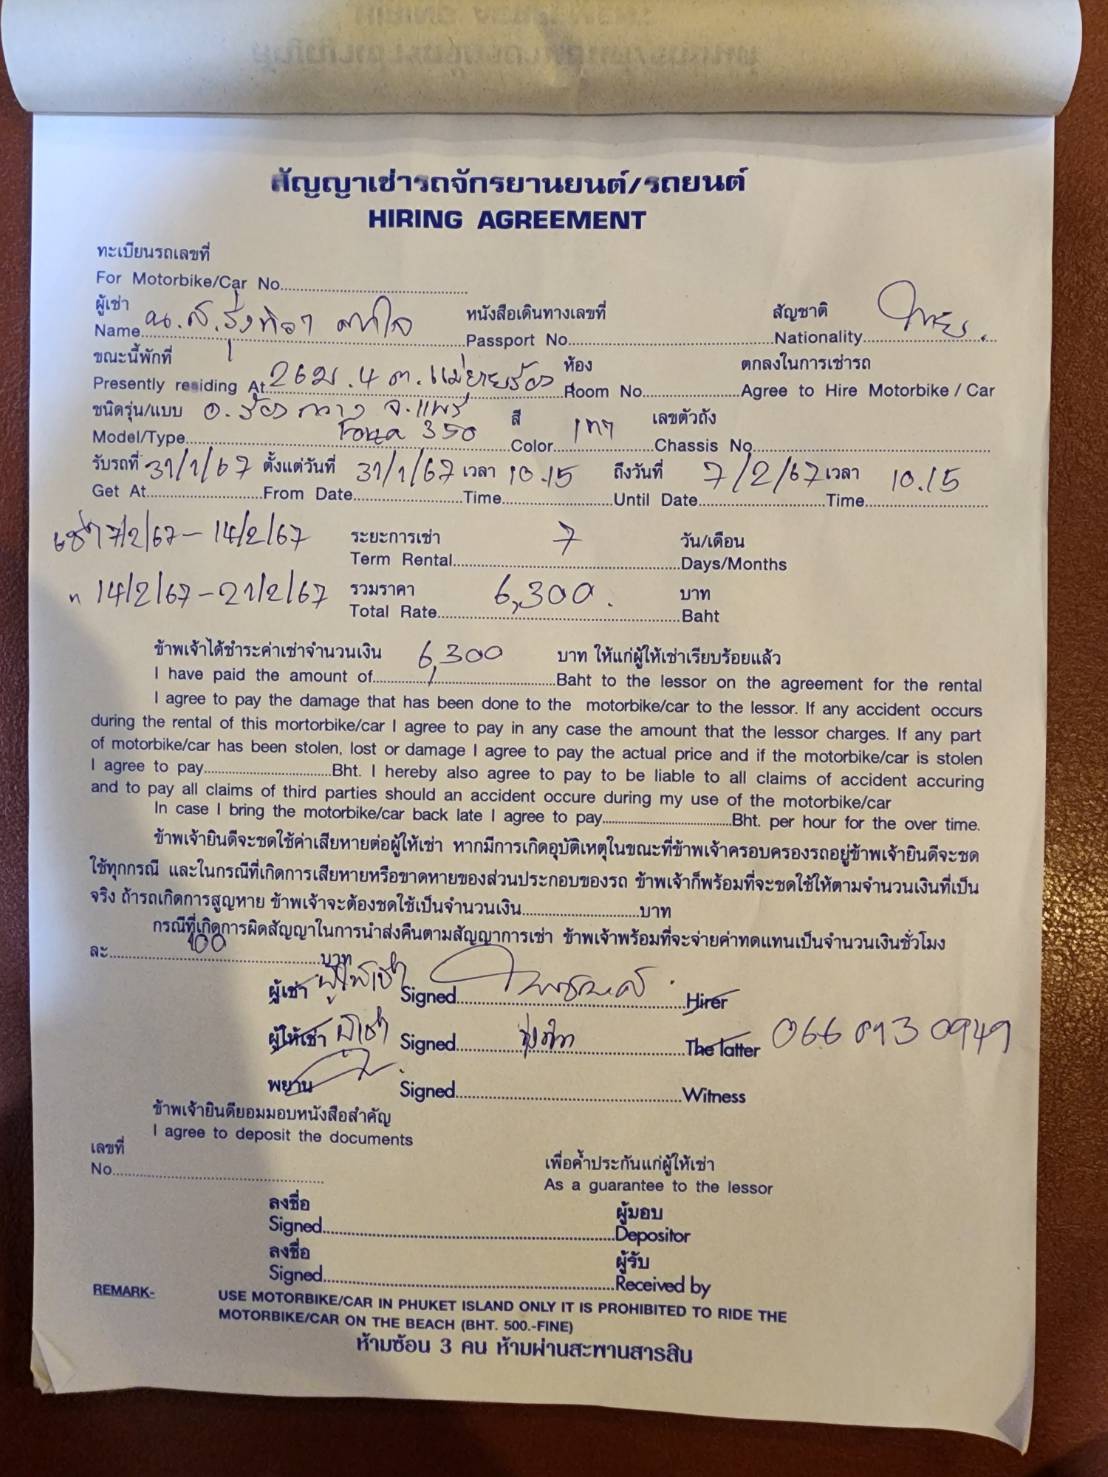 สัญญาเช่ารถจักรยานยนต์/รถยนต์
HIRING AGREEMENT
ทะเบียนรถเลขที่
For Motorbike/Car No.
ผู้เช่า น.ส. หนังสือเดินทางเลขที่ สัญชาติ ไทย
Name Passport No. Nationality
ขณะนี้พักที่ 26 ม.4 ต.แม่ยายร้อง ห้อง ตกลงในการเช่ารถ
Presently residing At Room No. Agree to Hire Motorbike / Car
ชนิดรุ่น/แบบ อ.ร้องกวาง จ.แพร่ สี เทา เลขตัวถัง
Model/Type Forza 350 Color Chassis No.
รับรถที่ 31/1/67 ตั้งแต่วันที่ 31/1/67 เวลา 10.15 ถึงวันที่ 7/2/67 เวลา 10.15
Get At From Date Time Until Date Time
เช่า 7/2/67 - 14/2/67 ระยะการเช่า 7 วัน/เดือน
Term Rental Days/Months
" 14/2/67 - 21/2/67 รวมราคา 6,300. บาท
Total Rate Baht
ข้าพเจ้าได้ชำระค่าเช่าจำนวนเงิน 6,300 บาท ให้แก่ผู้ให้เช่าเรียบร้อยแล้ว
I have paid the amount of Baht to the lessor on the agreement for the rental
I agree to pay the damage that has been done to the motorbike/car to the lessor. If any accident occurs
during the rental of this mortorbike/car I agree to pay in any case the amount that the lessor charges. If any part
of motorbike/car has been stolen, lost or damage I agree to pay the actual price and if the motorbike/car is stolen
I agree to pay Bht. I hereby also agree to pay to be liable to all claims of accident accuring
and to pay all claims of third parties should an accident occure during my use of the motorbike/car
In case I bring the motorbike/car back late I agree to pay Bht. per hour for the over time.
ข้าพเจ้ายินดีจะชดใช้ค่าเสียหายต่อผู้ให้เช่า หากมีการเกิดอุบัติเหตุในขณะที่ข้าพเจ้าครอบครองรถอยู่ข้าพเจ้ายินดีจะชด
ใช้ทุกกรณี และในกรณีที่เกิดการเสียหายหรือขาดหายของส่วนประกอบของรถ ข้าพเจ้าก็พร้อมที่จะชดใช้ให้ตามจำนวนเงินที่เป็น
จริง ถ้ารถเกิดการสูญหาย ข้าพเจ้าจะต้องชดใช้เป็นจำนวนเงิน บาท
กรณีที่เกิดการผิดสัญญาในการนำส่งคืนตามสัญญาการเช่า ข้าพเจ้าพร้อมที่จะจ่ายค่าทดแทนเป็นจำนวนเงินชั่วโมง
ละ 100 บาท
ผู้เช่า ผู้ให้เช่า Signed Hirer
ผู้ให้เช่า ผู้เช่า Signed The latter
พยาน Signed Witness
ข้าพเจ้ายินดียอมมอบหนังสือสำคัญ
I agree to deposit the documents
เลขที่ เพื่อค้ำประกันแก่ผู้ให้เช่า
No. As a guarantee to the lessor
ลงชื่อ ผู้มอบ
Signed Depositor
ลงชื่อ ผู้รับ
Signed Received by
REMARK- USE MOTORBIKE/CAR IN PHUKET ISLAND ONLY IT IS PROHIBITED TO RIDE THE
MOTORBIKE/CAR ON THE BEACH (BHT. 500.-FINE)
ห้ามซ้อน 3 คน ห้ามผ่านสะพานสารสิน